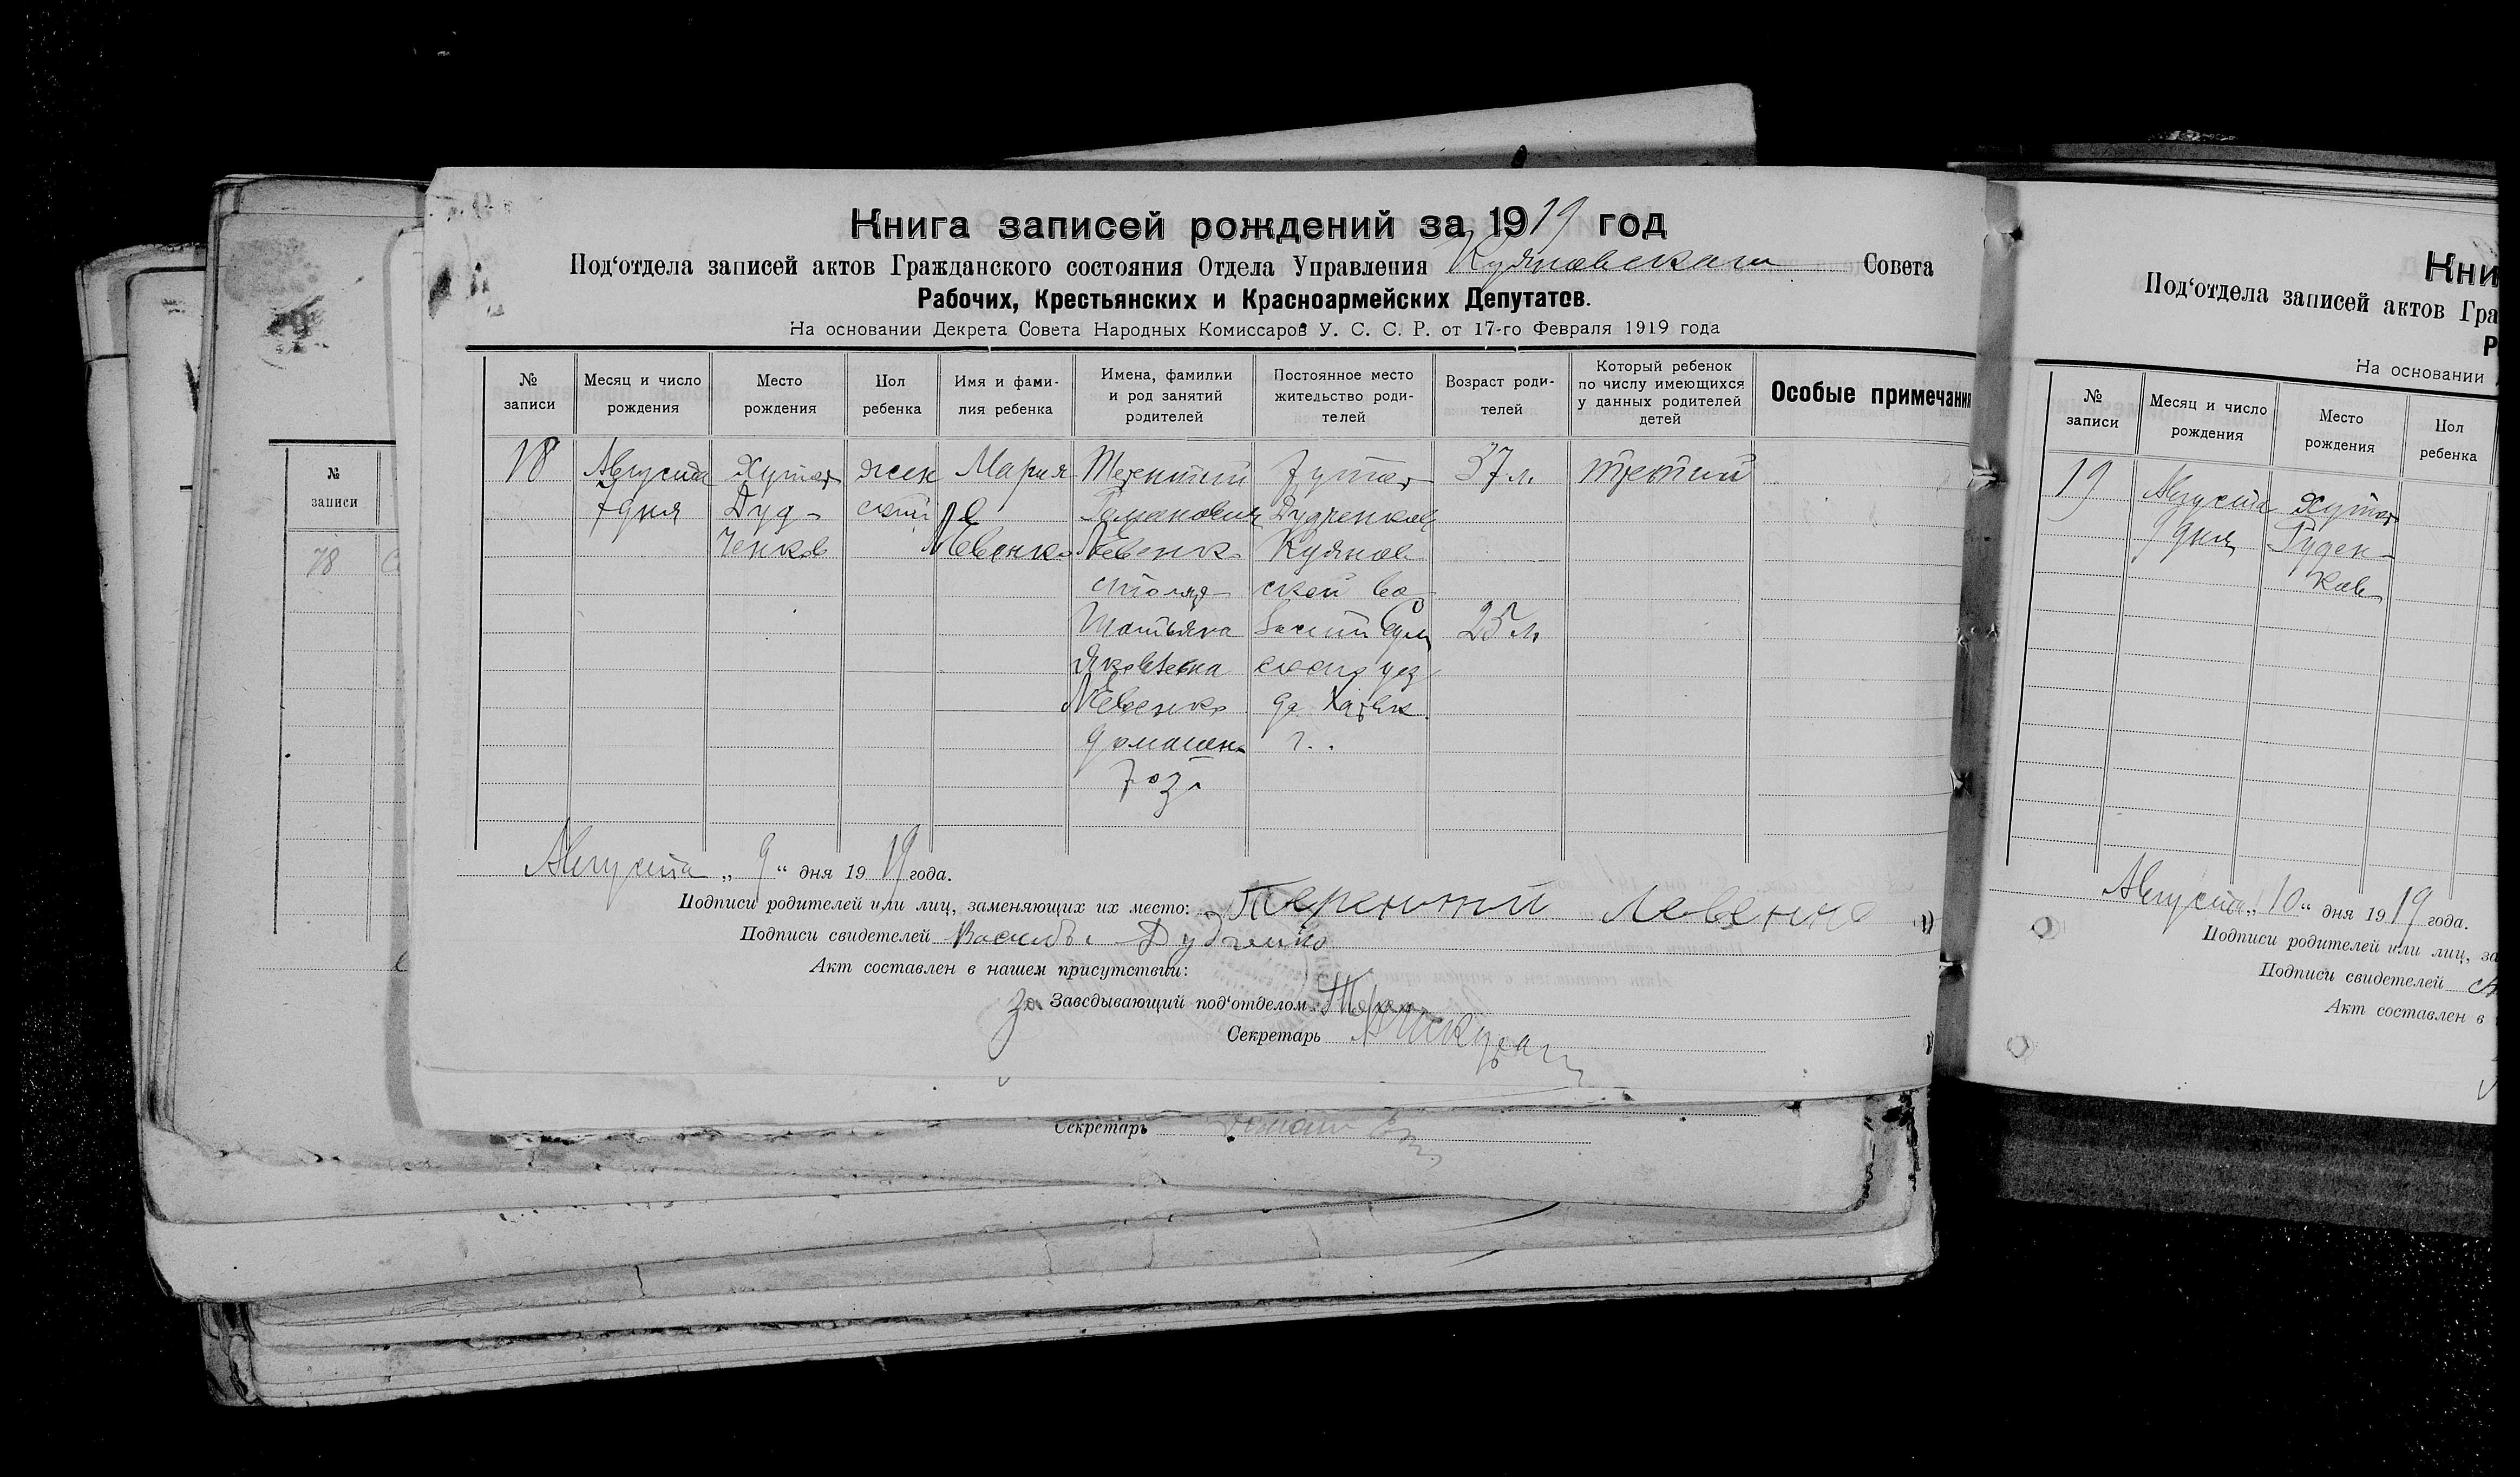 Книга записей рождений за 1919 год
Под‘отдела записей актов Гражданского состояния Отдела Управления Куяновскаго Совета
Рабочих, Крестьянских и Красноармейских Депутатов.
На основании Декрета Совета Народных Комиссаров У. С. С. Р. от 17-го Февраля 1919 года
№ записи
Месяц и число рождения
Место рождения
Пол ребенка
Имя и фами-
лия ребенка
Имена, фамилии
и род занятий
родителей
Постоянное место
жительство роди-
телей
Возраст роди-
телей
Который ребенок
по числу имеющихся
у данных родителей
детей
Особые примечания
18
Августа
7 дня
Хутор
Дуд-
ченков
жен
ский
Мария
Левенко
Терентий
Романович
Левенко
столяр
Татьяна
Яковлевна
Левенко
домашн
хоз.
хутор
Дудченков
Куянов
ской во
лости Сум
ского уез
да Харьк
г.
37 л.
25 л.
третий
Августа „ 9 “ дня 1919 года.
Подписи родителей или лиц, заменяющих их место: Терентий Левенко
Подписи свидетелей Василь Дудченко
Акт составлен в нашем присутствии:
За Заведывающий под‘отделом
Секретарь
Секретарь
№
записи
78
Кни
Под‘отдела записей актов Гра
Р
На основании
№
записи
Месяц и число
рождения
Место
рождения
Пол
ребенка
19
Августа
9 дня
Хутор
Августа „ 10 “ дня 1919 года.
Подписи родителей или лиц, за
Подписи свидетелей
Акт составлен в